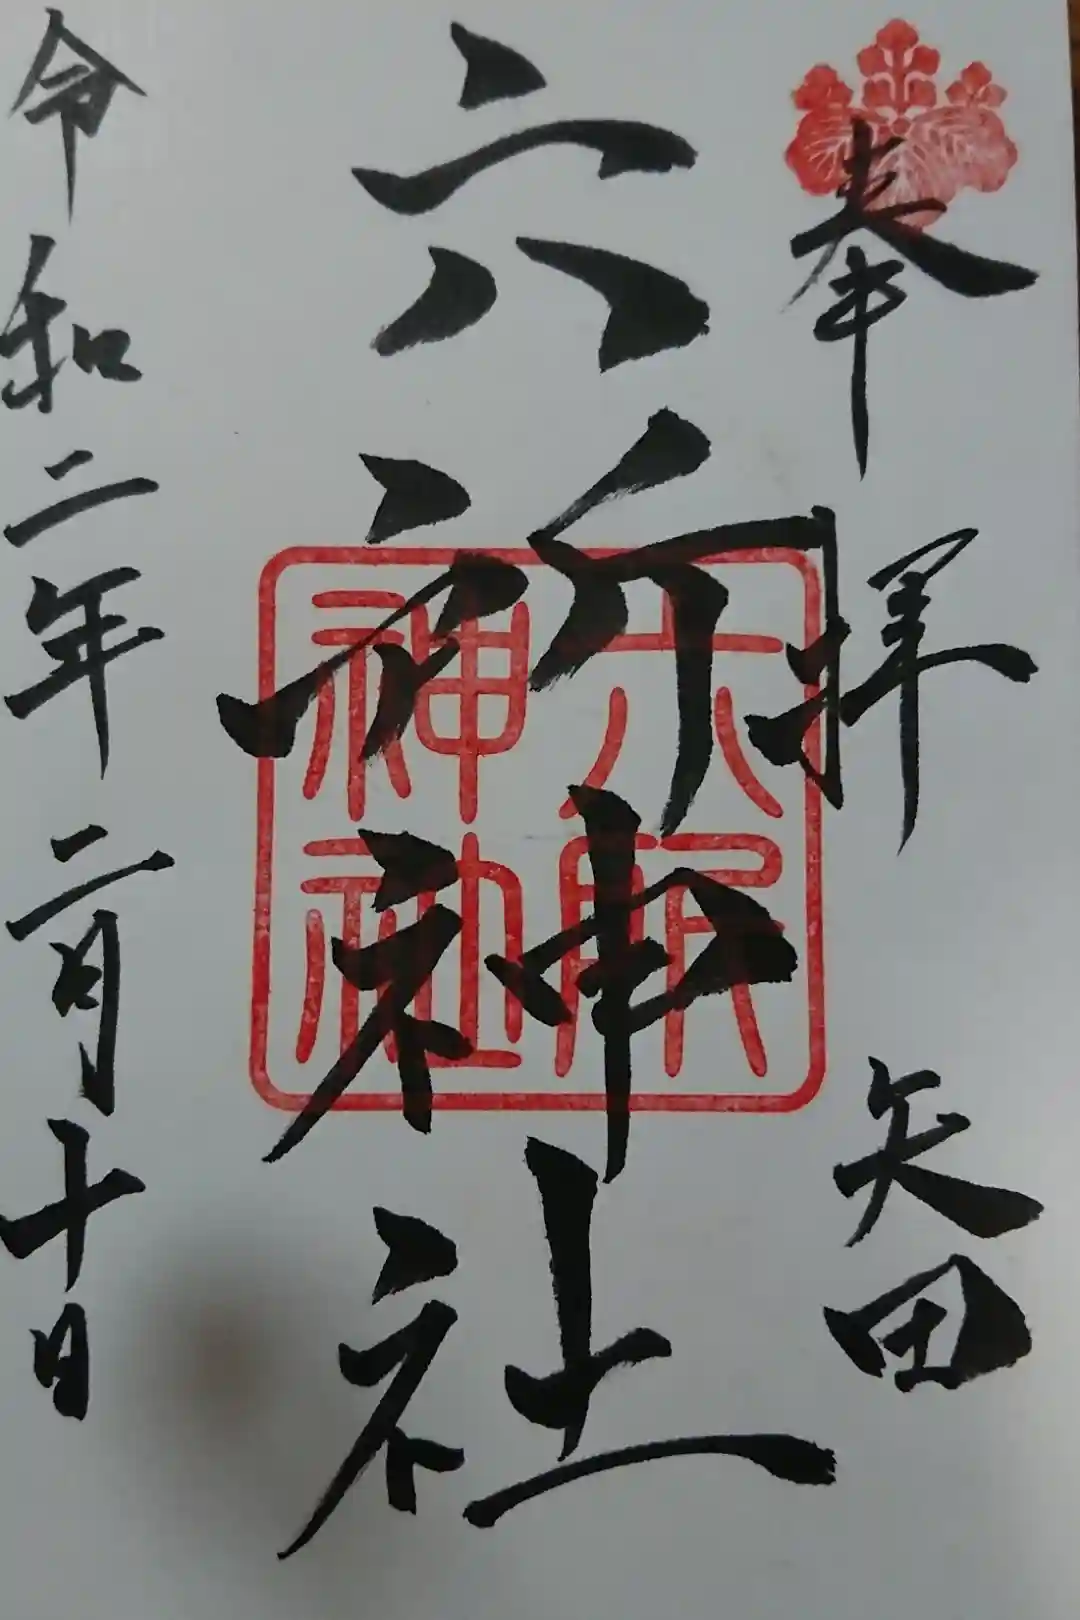 奉拝　矢田
六所神社
六所神社
令和二年二月十日